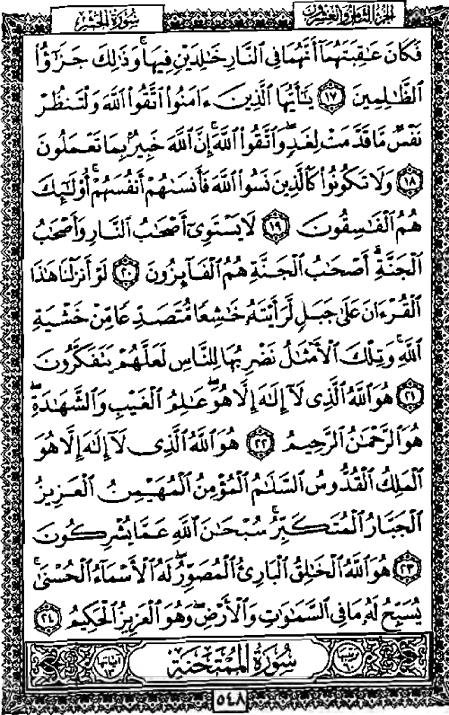 الجزء الثامن والعشرون
سورة الحشر
فَكَانَ عَٰقِبَتَهُمَآ أَنَّهُمَا فِى ٱلنَّارِ خَٰلِدَيْنِ فِيهَا ۚ وَذَٰلِكَ جَزَٰٓؤُا۟
ٱلظَّٰلِمِينَ ١٧ يَٰٓأَيُّهَا ٱلَّذِينَ ءَامَنُوا۟ ٱتَّقُوا۟ ٱللَّهَ وَلْتَنظُرْ
نَفْسٌ مَّا قَدَّمَتْ لِغَدٍ ۖ وَٱتَّقُوا۟ ٱللَّهَ ۚ إِنَّ ٱللَّهَ خَبِيرٌۢ بِمَا تَعْمَلُونَ
١٨ وَلَا تَكُونُوا۟ كَٱلَّذِينَ نَسُوا۟ ٱللَّهَ فَأَنسَىٰهُمْ أَنفُسَهُمْ ۚ أُو۟لَٰٓئِكَ
هُمُ ٱلْفَٰسِقُونَ ١٩ لَا يَسْتَوِىٓ أَصْحَٰبُ ٱلنَّارِ وَأَصْحَٰبُ
ٱلْجَنَّةِ ۚ أَصْحَٰبُ ٱلْجَنَّةِ هُمُ ٱلْفَآئِزُونَ ٢٠ لَوْ أَنزَلْنَا هَٰذَا
ٱلْقُرْءَانَ عَلَىٰ جَبَلٍ لَّرَأَيْتَهُۥ خَٰشِعًا مُّتَصَدِّعًا مِّنْ خَشْيَةِ
ٱللَّهِ ۚ وَتِلْكَ ٱلْأَمْثَٰلُ نَضْرِبُهَا لِلنَّاسِ لَعَلَّهُمْ يَتَفَكَّرُونَ
٢١ هُوَ ٱللَّهُ ٱلَّذِى لَآ إِلَٰهَ إِلَّا هُوَ ۖ عَٰلِمُ ٱلْغَيْبِ وَٱلشَّهَٰدَةِ ۖ
هُوَ ٱلرَّحْمَٰنُ ٱلرَّحِيمُ ٢٢ هُوَ ٱللَّهُ ٱلَّذِى لَآ إِلَٰهَ إِلَّا هُوَ
ٱلْمَلِكُ ٱلْقُدُّوسُ ٱلسَّلَٰمُ ٱلْمُؤْمِنُ ٱلْمُهَيْمِنُ ٱلْعَزِيزُ
ٱلْجَبَّارُ ٱلْمُتَكَبِّرُ ۚ سُبْحَٰنَ ٱللَّهِ عَمَّا يُشْرِكُونَ
٢٣ هُوَ ٱللَّهُ ٱلْخَٰلِقُ ٱلْبَارِئُ ٱلْمُصَوِّرُ ۖ لَهُ ٱلْأَسْمَآءُ ٱلْحُسْنَىٰ ۚ
يُسَبِّحُ لَهُۥ مَا فِى ٱلسَّمَٰوَٰتِ وَٱلْأَرْضِ ۖ وَهُوَ ٱلْعَزِيزُ ٱلْحَكِيمُ ٢٤
سُورَةُ المُمْتَحنَة
آياتها ١٣
٥٤٨